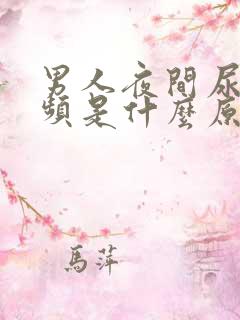 男人夜間尿
頻是什麼原
馬萍